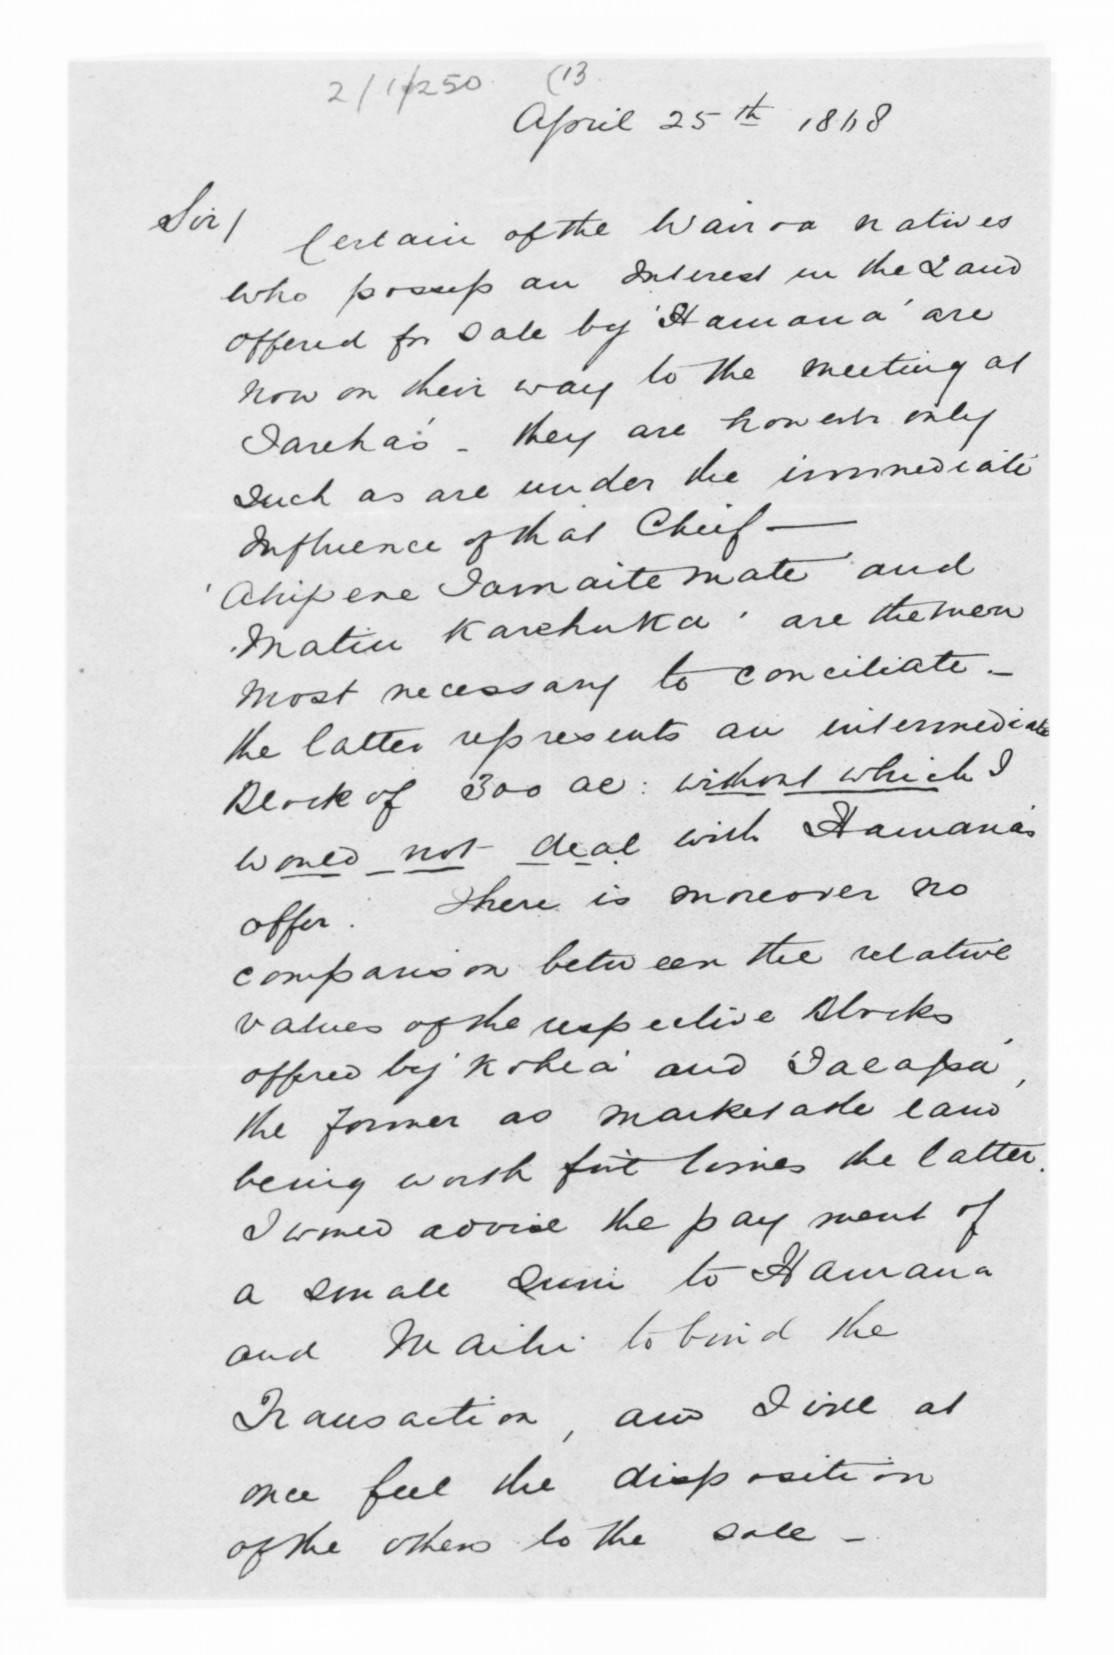 2/1/250 (13
April 25th 1868
Sir/ Certain of the Wairoa natives
who possess an Interest in the Land
offered for Sale by 'Hamana' are
now on their way to the meeting at
Tareha's - they are however only
such as are under the immediate
Influence of that Chief —
'Ahipene Tamaitemate' and
'Matiu Karehuka' are the men
most necessary to conciliate -
the latter represents an intermediate
Block of 300 ac: without which I
would not deal with Hamana's
offer. There is moreover no
comparison between the relative
values of the respective Blocks
offered by 'Kohea' and
the former as marketable land
being worth five times the latter.
I would advise the payment of
a small Sum to Hamana
and Maihi to bind the
Transaction, and I will at
once feel the disposition
of the others to the sale -